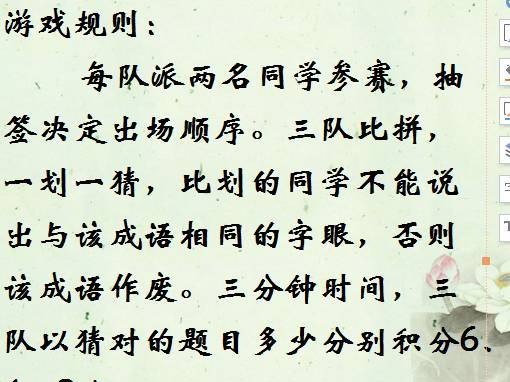 游戏规则：
每队派两名同学参赛，抽
签决定出场顺序。三队比拼，
一划一猜，比划的同学不能说
出与该成语相同的字眼，否则
该成语作废。三分钟时间，三
队以猜对的题目多少分别积分6、